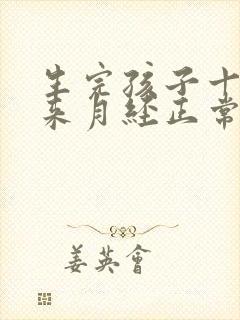 生完孩子十
来月经正常
姜英會